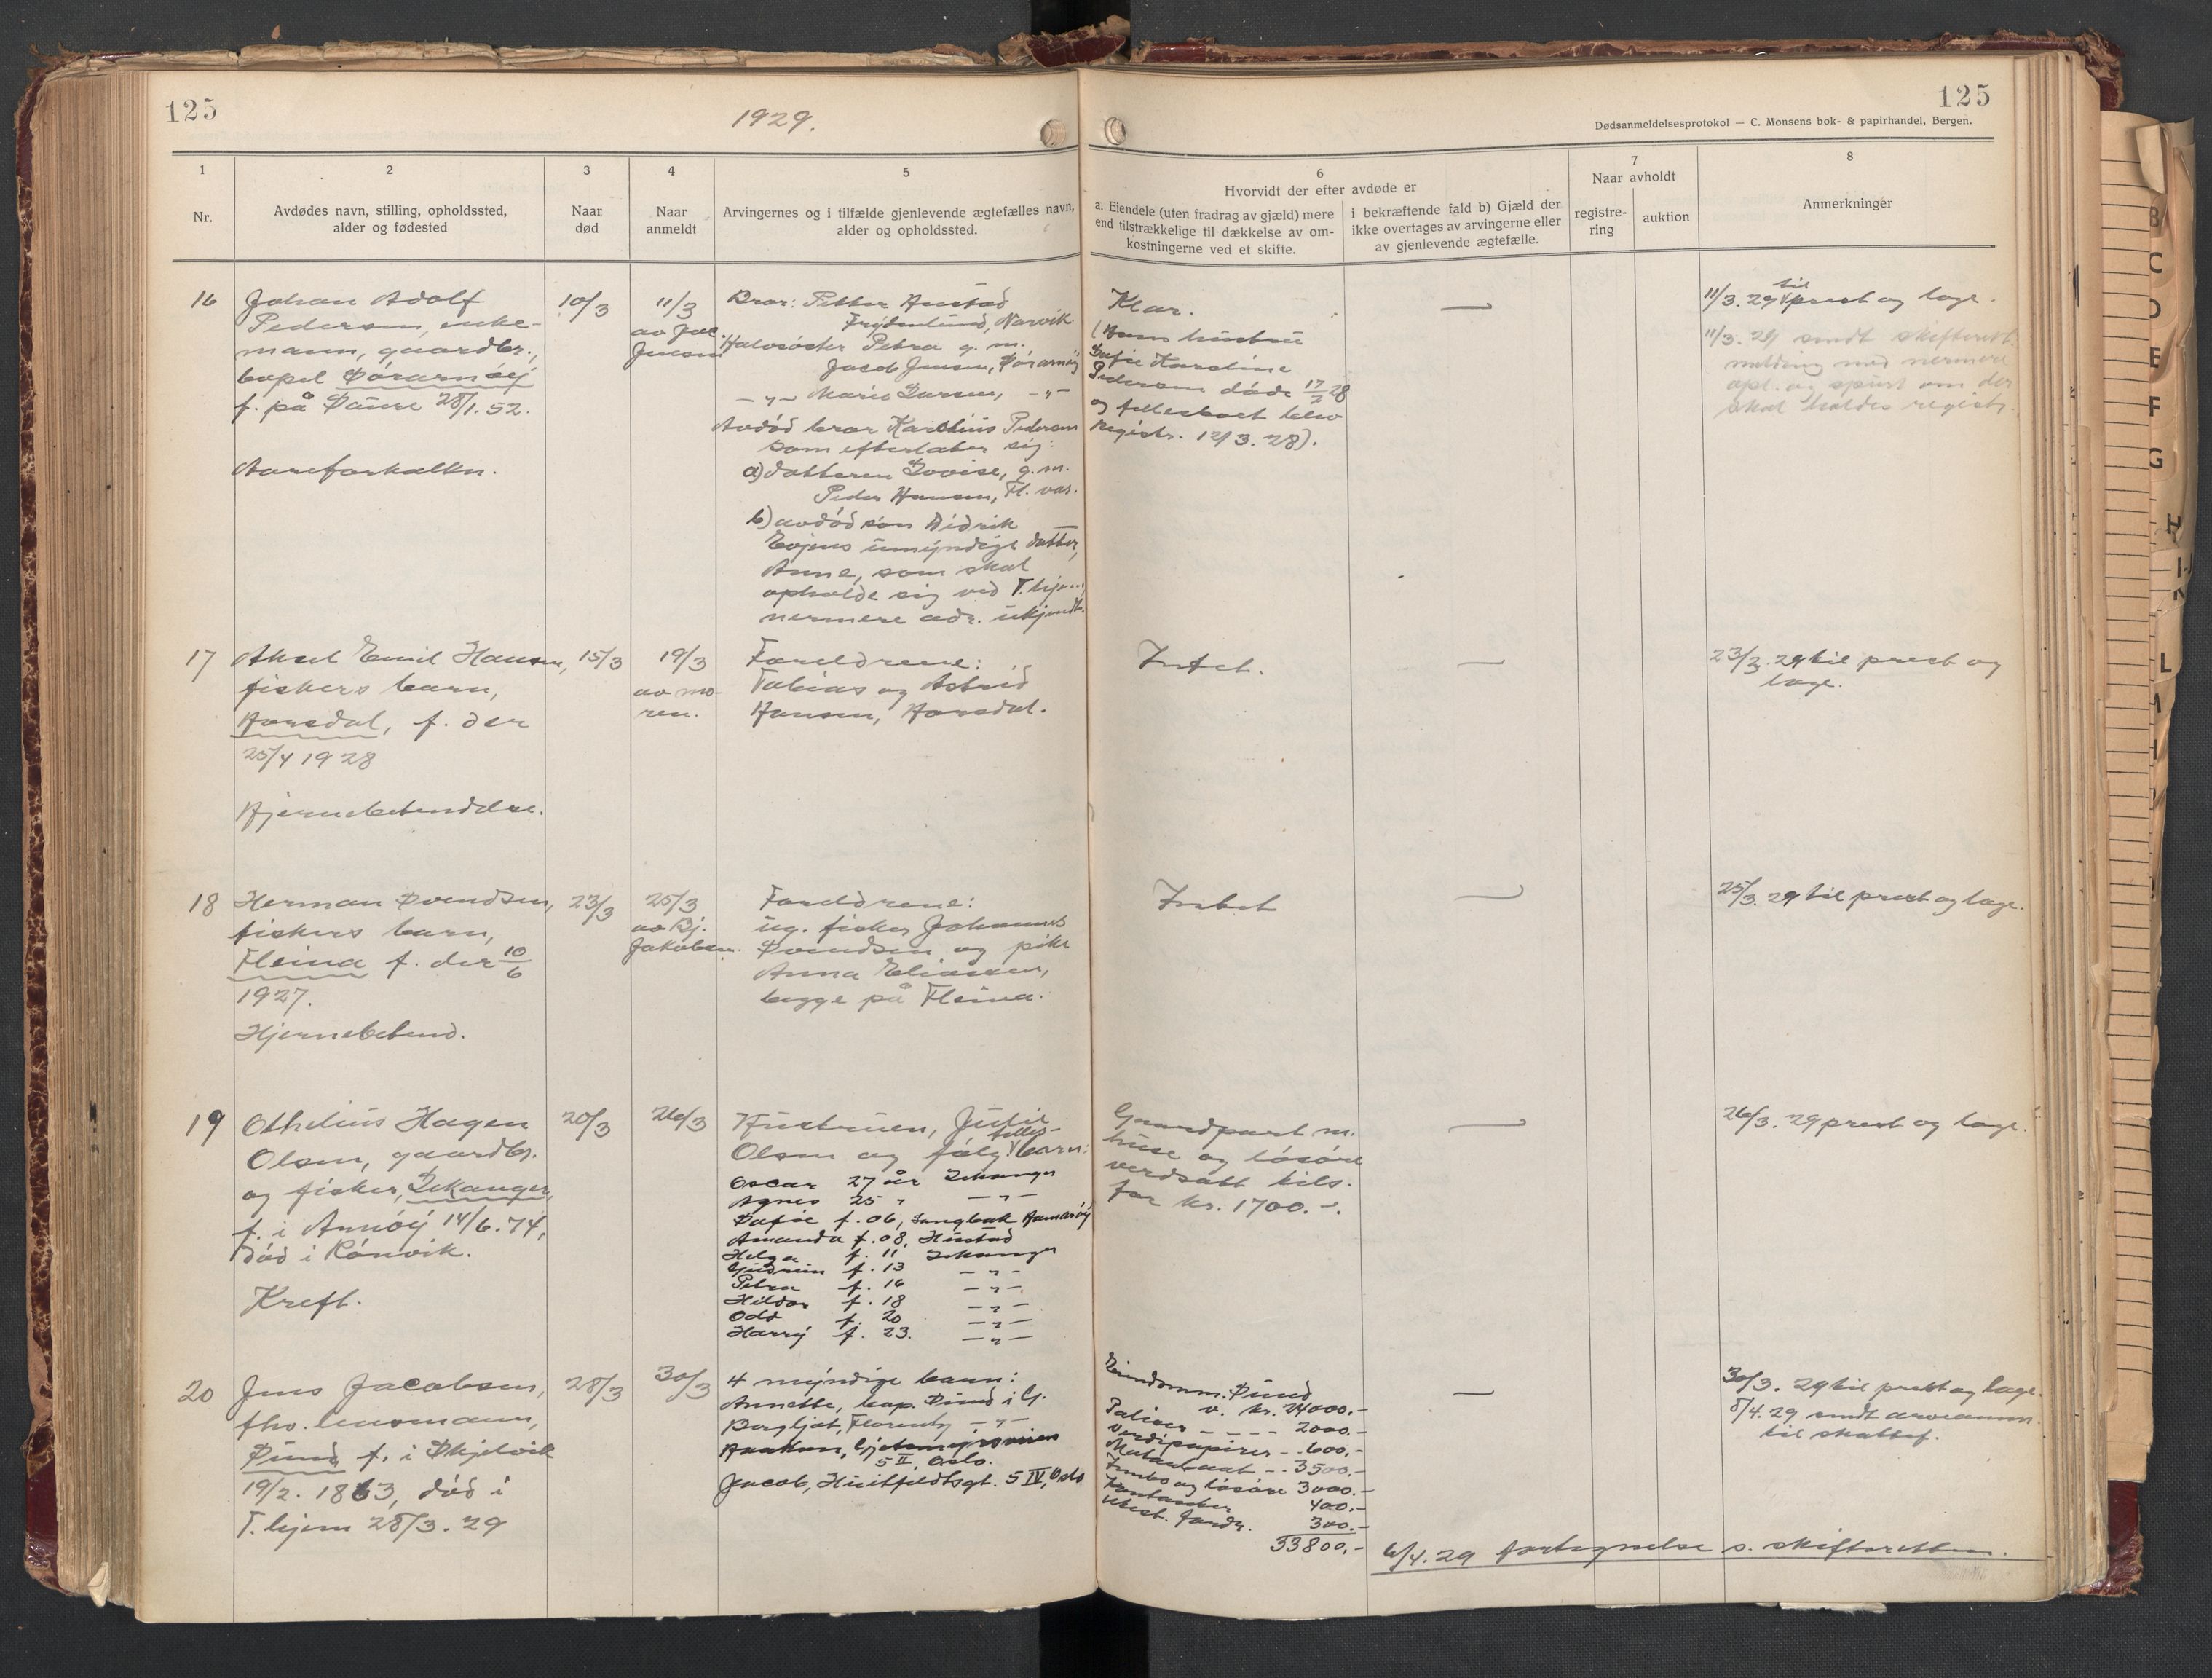 125
1929.
125
Dødsanmeldelsesprotokol — C. Monsens bok- & papirhandel, Bergen.
1
Nr.
2
Avdødes navn, stilling, opholdssted,
alder og fødested
3
Naar
død
4
Naar
anmeldt
5
Arvingernes og i tilfælde gjenlevende ægtefælles navn,
alder og opholdssted.
6
Hvorvidt der efter avdøde er
a. Eiendele (uten fradrag av gjæld) mere
end tilstrækkelige til dækkelse av om-
kostningerne ved et skifte.
i bekræftende fald b) Gjæld der
ikke overtages av arvingerne eller
av gjenlevende ægtefælle.
7
Naar avholdt
registre-
ring
auktion
8
Anmerkninger
16
Johan Adolf
Pedersen, enke-
mann, gaardbr.,
bopel Sørarnøy
f. på Saure 28/1. 52.
Aareforkalkn.
10/3
11/3
av Jac.
Jensen
Bror: Petter Hustad
Frydenlund, Narvik
Halvsøster Petra g. m.
Jacob Jensen, Sørarnøy
—„— Marie Larsen, —„—
Avdød bror Karolius Pedersen
som efterlater sig:
a) datteren Lovise, g. m.
Peder Hansen, Fl. vær.
b) avdød søn Didrik
Evjens umyndige datter,
Anne, som skal
opholde sig ved T.hjem,
nermere adr. ukjendt.
Klar.
(Hans hustru
Sofie Karoline
Pedersen døde 17/2 28
og fellesboet blev
registr. 12/3. 28).
—
11/3. 29 til prest og lage.
11/3. 29 sendt skifterett.
melding med nermere
opl. og spurt om der
skal holdes registr.
17
Aksel Emil Hansen,
fiskers barn,
Horsdal, f. der
25/4 1928
Hjernebetendelse.
15/3
19/3
av mo-
ren.
Foreldrene:
Tobias og Astrid
Hansen, Horsdal.
Intet.
—
23/3. 29 til prest og
lage.
18
Herman Svendsen,
fiskers barn,
Fleina f. der 10/6
1927.
Hjernebetend.
23/3
25/3
av Bj.
Jakobsen.
Foreldrene:
ug. fisker Johannes
Svendsen og pike
Anna Eliassen,
begge på Fleina.
Intet
—
25/3. 29 til prest og lage.
19
Othelius Hagen
Olsen, gaardbr.
og fisker, Lekanger,
f. i Arnøy 14/6. 74,
død i Rønvik.
Kreft.
20/3
26/3
Hustruen, Julie
Olsen og følg. felles-barn:
Oscar 27 år Lekanger
Agnes 25 „ —„—
Sofie f. 06, Langbak Hamarøy
Amanda f. 08, Hustad
Helga f. 11 Lekanger
Gudrun f. 13 —„—
Petra f. 16 —„—
Hildor f. 18 —„—
Odd f. 20 —„—
Harry f. 23. —„—
Gaardpart m.
huse og løsøre
verdsatt tils.
for kr. 1700.-.
—
26/3. 29 prest og lage.
20
Jens Jacobsen,
fhv. lensmann,
Sund f. i Skjelvik
19/2. 1863, død i
T. hjem 28/3. 29
28/3
30/3
4 myndige barn:
Annette, bop. Sund i G.
Bergljot, —„—
Haakon, Gjetemyrsveien
5 II, Oslo.
Jacob, Huitfeldtsgt. 5 IV, Oslo
Eiendomm. Sund
v. kr. 24000.-
Poliser - - - - 2000.-
Verdipapirer - - 600.-
- - 3500.-
Innbo og løsøre 3000.-
Kontanter 400.-
Utest. fordr. 300.-
33800,-
—
30/3. 29 til prest og lage.
8/4. 29 sendt arveanm.
til skattef.
6/4. 29 fortegnelse s. skifteretten.
B
C
D
E
F
G
H
L